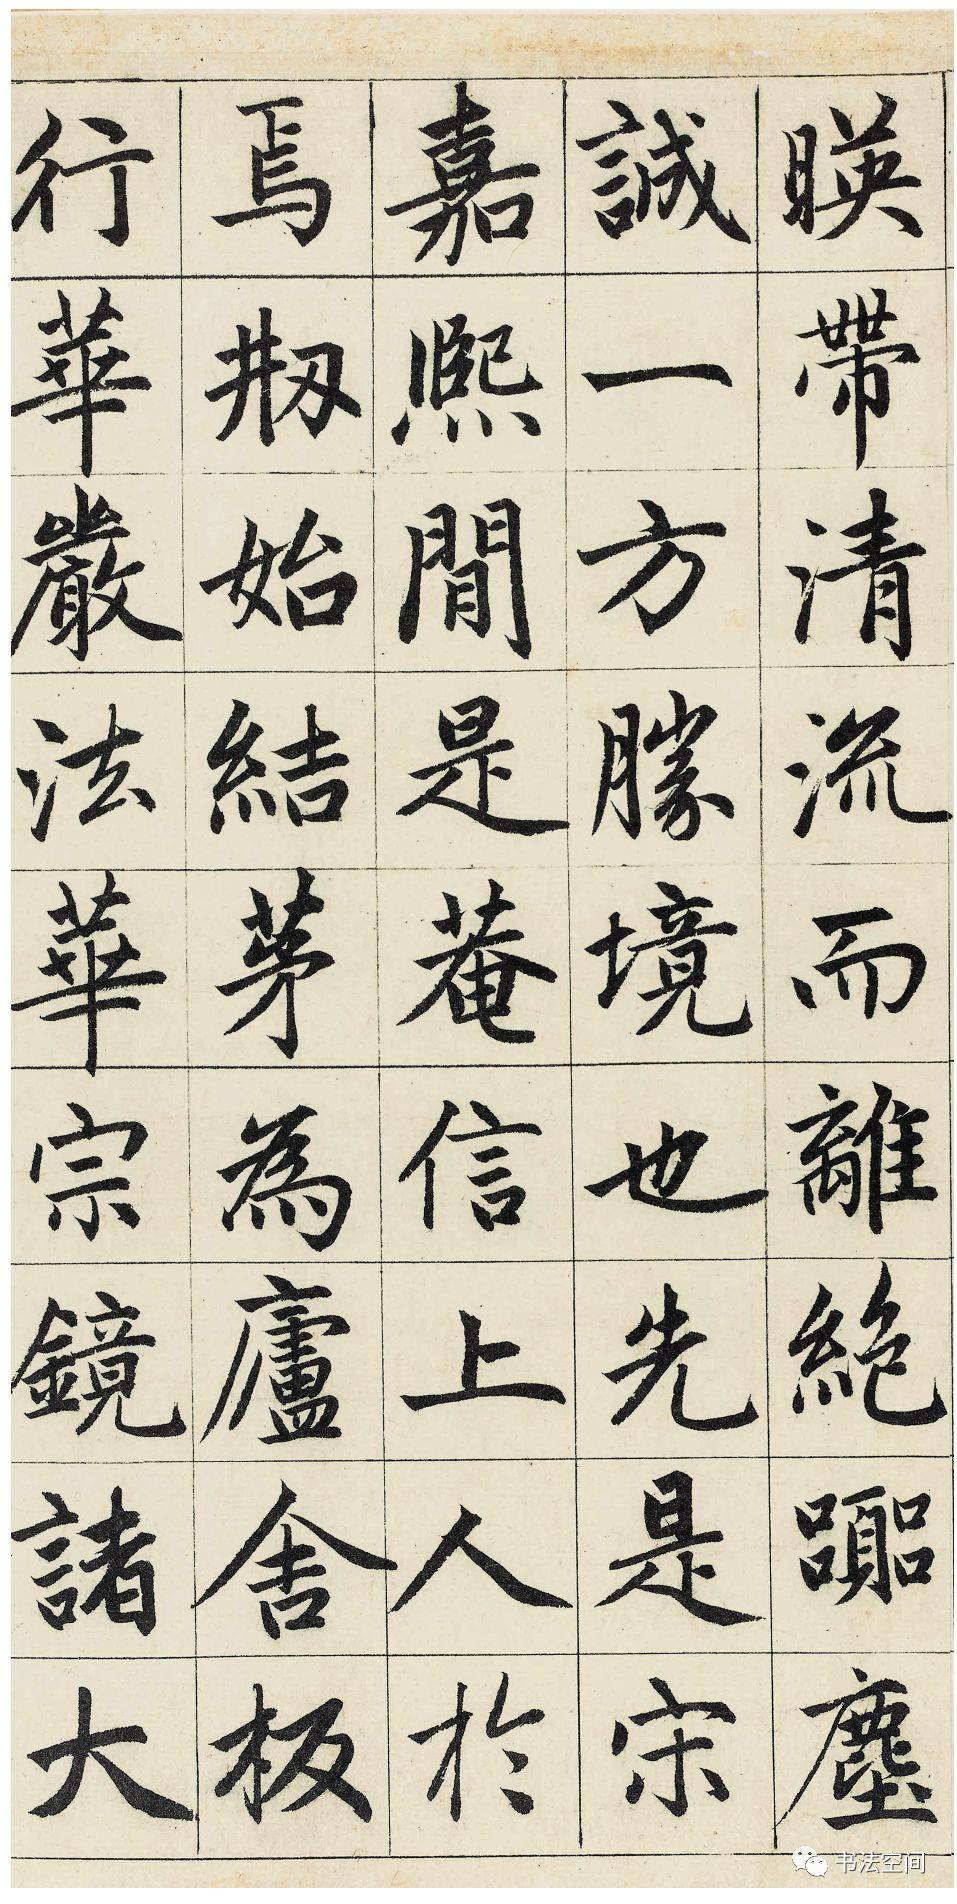 暎帶清流而離絶嚻塵
誠一方勝境也先是宋
嘉熈間是菴信上人於
焉刱始結茅為廬舍板
行華嚴法華宗鏡諸大
书法空间